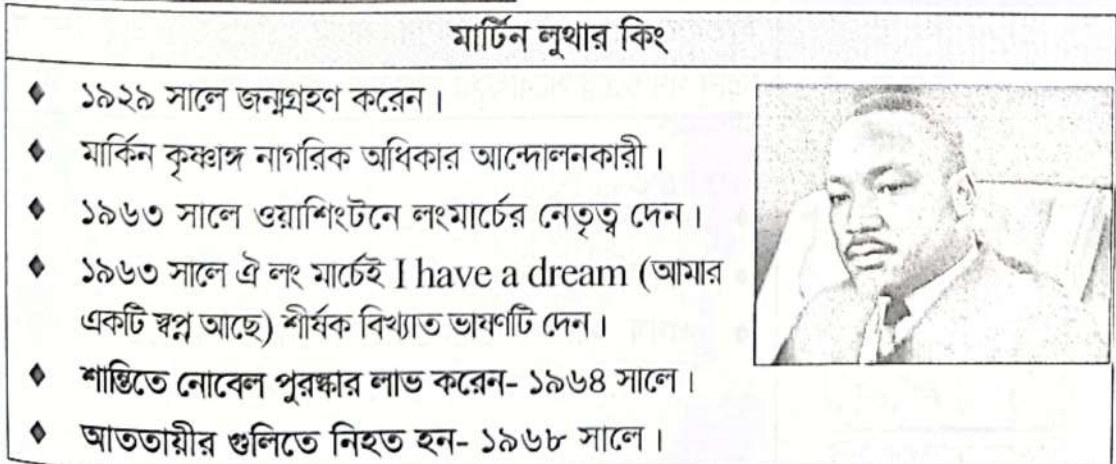 মার্টিন লুথার কিং
♦ ১৯২৯ সালে জন্মগ্রহণ করেন।
♦ মার্কিন কৃষ্ণাঙ্গ নাগরিক অধিকার আন্দোলনকারী।
♦ ১৯৬৩ সালে ওয়াশিংটনে লংমার্চের নেতৃত্ব দেন।
♦ ১৯৬৩ সালে ঐ লং মার্চেই I have a dream (আমার
একটি স্বপ্ন আছে) শীর্ষক বিখ্যাত ভাষণটি দেন।
♦ শান্তিতে নোবেল পুরষ্কার লাভ করেন- ১৯৬৪ সালে।
♦ আততায়ীর গুলিতে নিহত হন- ১৯৬৮ সালে।